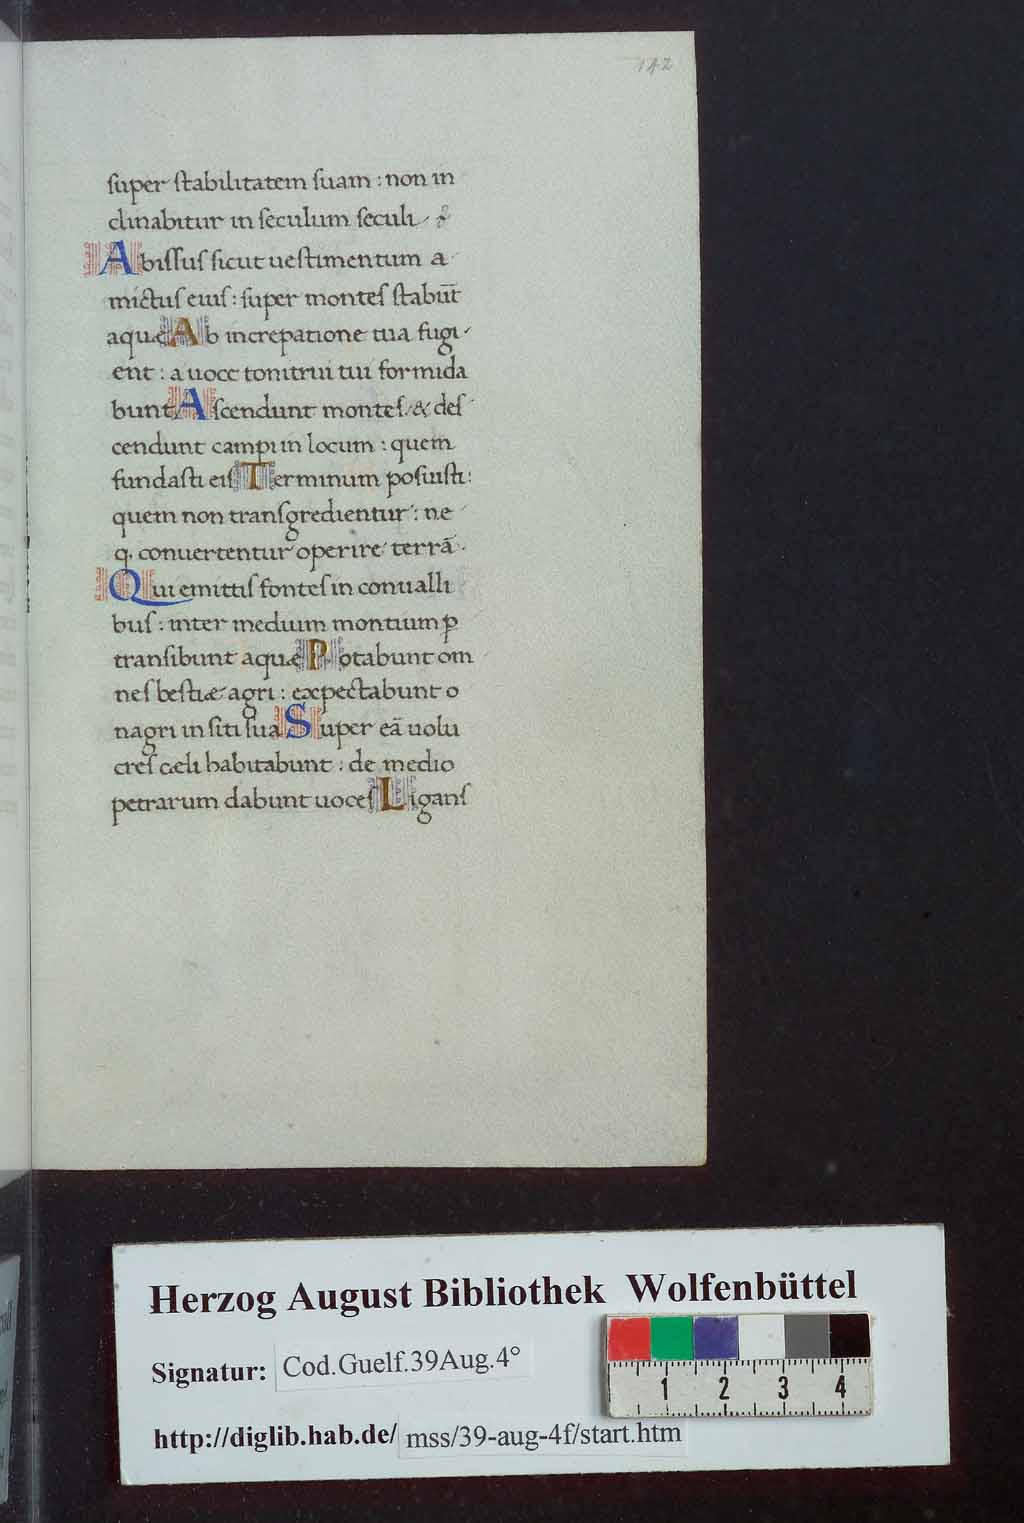 142
super stabilitatem suam : non in
clinabitur in seculum seculi
Abissus sicut uestimentum a
mictus eius : super montes stabūt
aquę Ab increpatione tua fugi
ent : a uoce tonitrui tui formida
bunt Ascendunt montes & des
cendunt campi in locum : quem
fundasti eis Terminum posuisti :
quem non transgredientur : ne
q. conuertentur operire terrā .
Qui emittis fontes in conualli
bus : inter medium montium ꝑ
transibunt aquę Potabunt om
nes bestiæ agri : expectabunt o
nagri in siti sua Super eā uolu
cres cæli habitabunt : de medio
petrarum dabunt uoces Ligans
Herzog August Bibliothek Wolfenbüttel
Signatur: Cod.Guelf.39Aug.4°
1 2 3 4
http://diglib.hab.de/ mss/39-aug-4f/start.htm